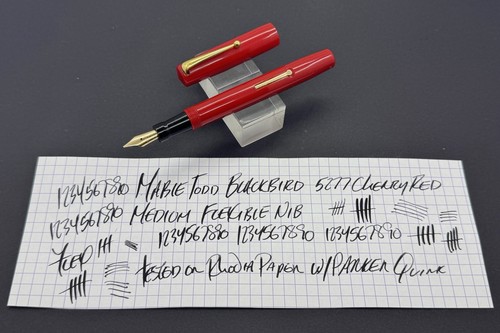 1234567890 MABIE TODD BLACKBIRD 5277 CHERRY RED
1234567890 MEDIUM FLEXIBLE NIB
1234567890 1234567890 1234567890
FLEX
TESTED ON RHODIA PAPER W/PARKER QUINK